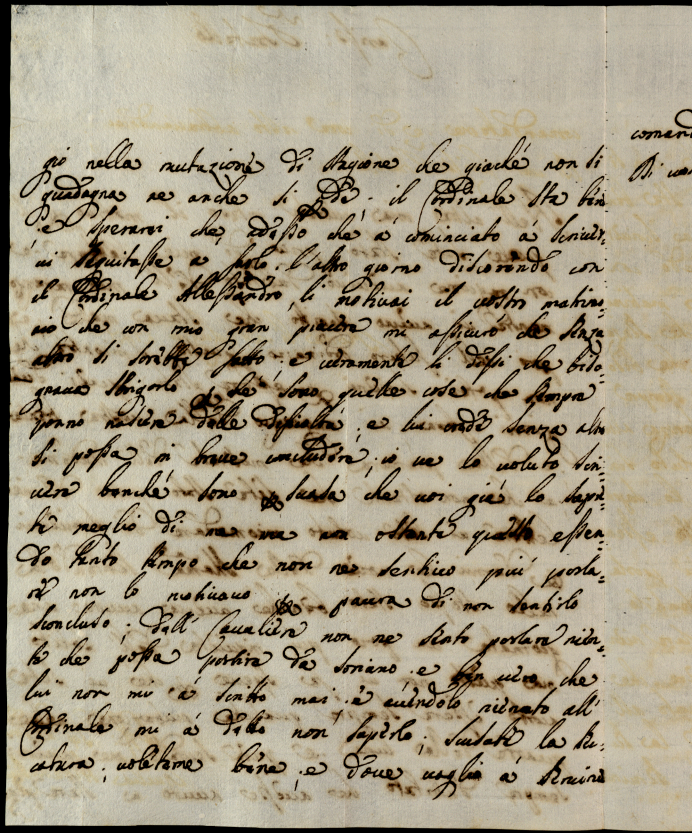 gio nella mutazione di stagione che giaché non si
guadagna ne anche si . il Cardinale sta bene
e sperarei che adesso che à cominciato à scriver,
vi seguitasse a farlo. l'altro giorno discorendo con
il Cardinale Allessandro, li motivai il vostro matrimo=
nio che con mio gran piacere mi assicurò che senza
altro si sarebbe fatto, e veramente li dissi che biso=
gnava sbrigarlo che sono quelle cose che sempre
ponno nascere delle dificoltà, e lui crede senza altro
si possa in breve concludere, io ve lo voluto scri=
vere benché sono persuasa che voi già lo sapre=
te meglio di me ma non ostante questo essen=
do tanto tempo che non ne sentivo più parla=
re non lo motivavo per paura di non sentirlo
sconcluso; dall' Cavaliere non ne sento parlare nien=
te che possa partire da Soriano. e ben vero che
lui non mi à scritto mai. e avendolo all'
Cardinale mi à detto non saperlo; scusate la sec=
catura, voleteme bene, e dove vaglio à servire
comand
Di